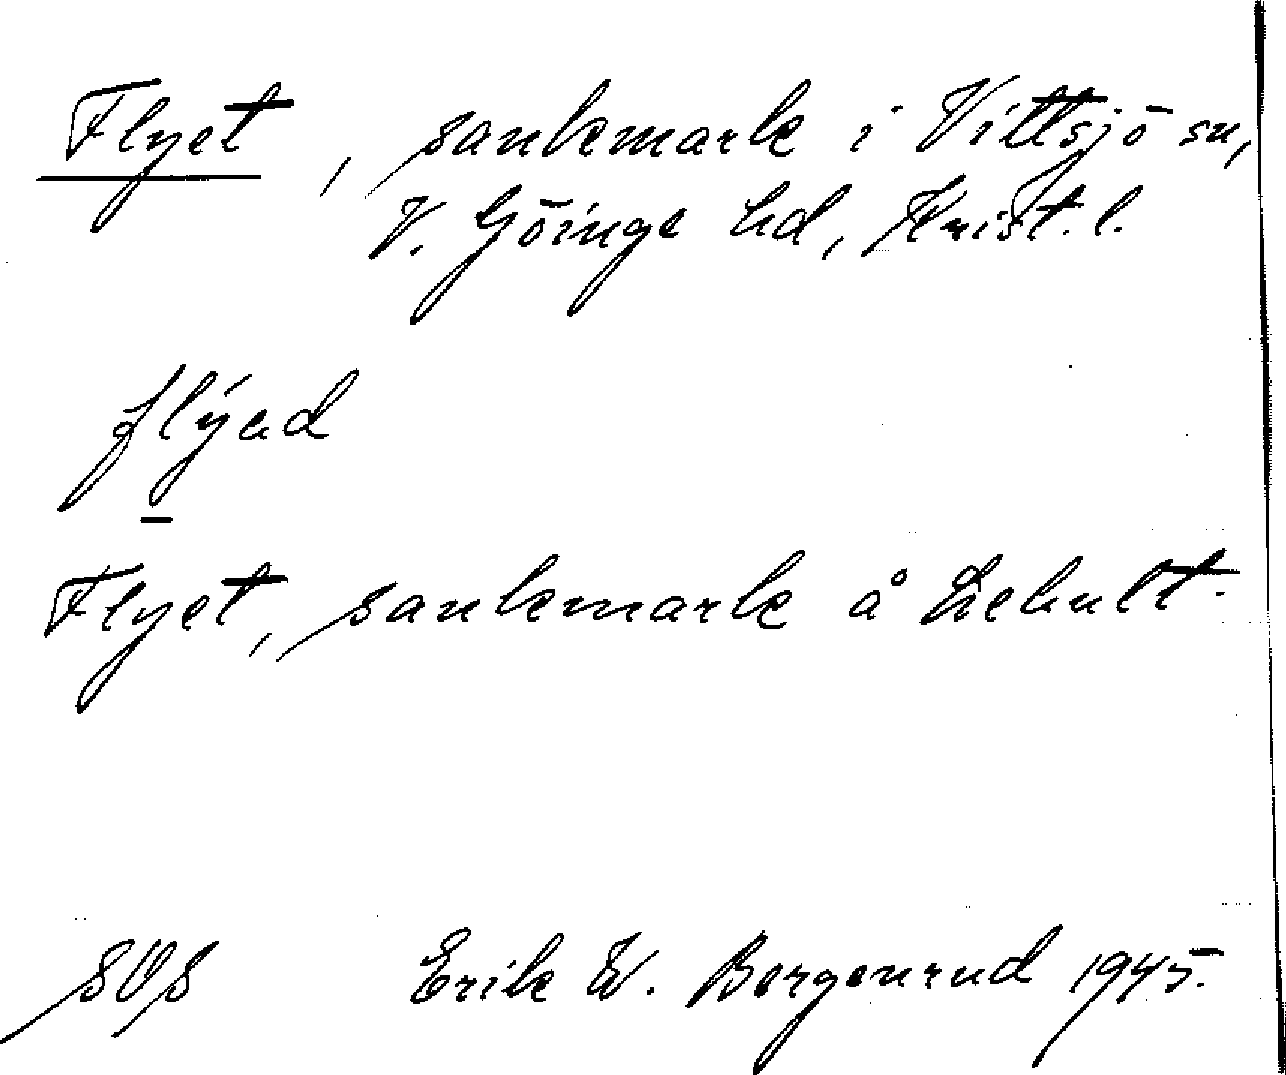 Flyet, sankmark i Vittsjö sn,
V. Göinge hd, Krist. l.
flýad
Flyet, sankmark å Lehult.
SOS Erik W. Bergenrud 1945.